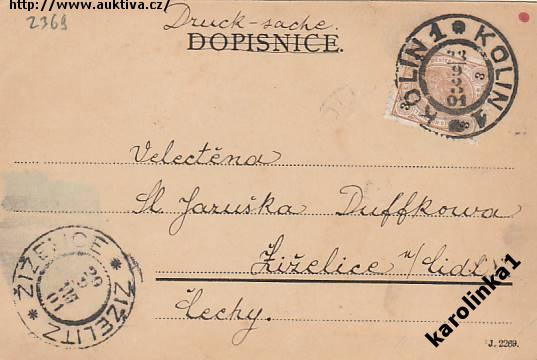 http://www.auktiva.cz/
2369
Druck-sache.
DOPISNICE.
KOLIN 1 * KOLIN 1 *
Velectěna
Sl. Jaruška Duffkowa
Žiželice n/Cidl.
Čechy.
ŽIŽELICE * ZIZELITZ *
karolinka1
J. 2269.